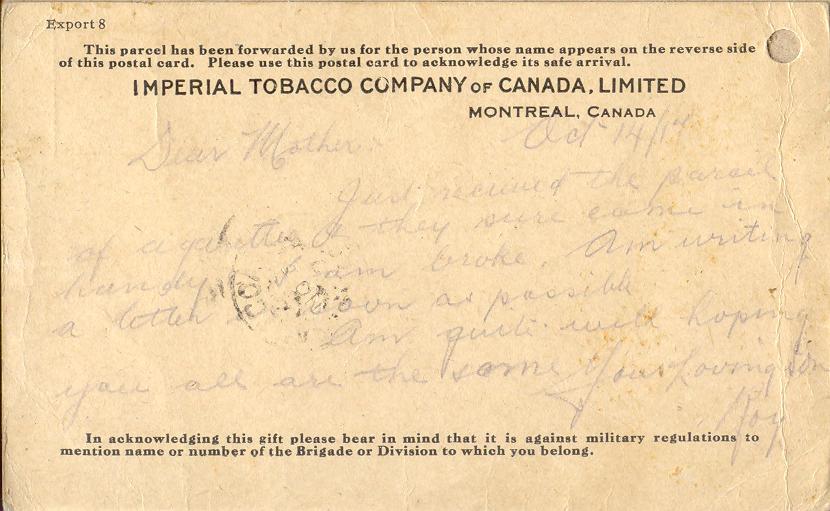 Export 8
This parcel has been forwarded by us for the person whose name appears on the reverse side
of this postal card. Please use this postal card to acknowledge its safe arrival.
IMPERIAL TOBACCO COMPANY OF CANADA, LIMITED
MONTREAL, CANADA
Oct 14/17
Dear Mother:
Just received the parcel
of & they sure come in
handy I am broke. Am writing
a letter as soon as possible
Am quite well hoping
you all are the same Your Loving Son
Roy
In acknowledging this gift please bear in mind that it is against military regulations to
mention name or number of the Brigade or Division to which you belong.